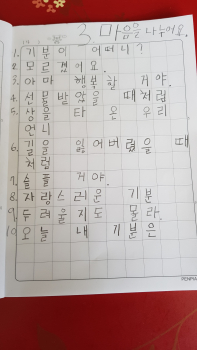 3 마음을 나누어요.
1. 기분이 어떠니?
2. 모르겠어요.
3. 아마 행복할 거야.
4. 선물받았을 때처럼
5. 상을 타온 우리
언니
6. 길을 잃어버렸을 때
처럼
7. 슬플 거야.
8. 자랑스러운 기분
9. 두려울지도 몰라.
10. 오늘 내 기분은